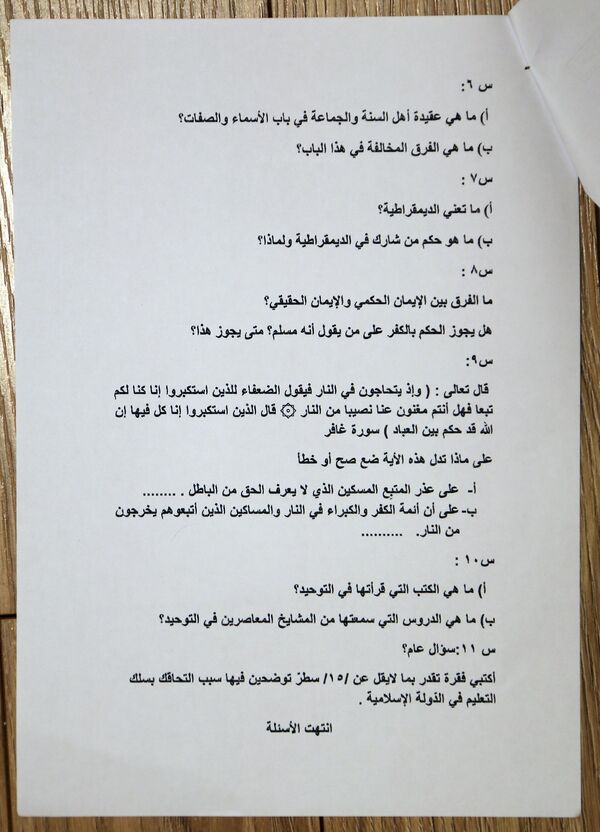 س ٦:
أ) ما هي عقيدة أهل السنة والجماعة في باب الأسماء والصفات؟
ب) ما هي الفرق المخالفة في هذا الباب؟
س٧ :
أ) ما تعني الديمقراطية؟
ب) ما هو حكم من شارك في الديمقراطية ولماذا؟
س٨ :
ما الفرق بين الإيمان الحكمي والإيمان الحقيقي؟
هل يجوز الحكم بالكفر على من يقول أنه مسلم؟ متى يجوز هذا؟
س٩:
قال تعالى : ( وإذ يتحاجون في النار فيقول الضعفاء للذين استكبروا إنا كنا لكم
تبعا فهل أنتم مغنون عنا نصيبا من النار ۞ قال الذين استكبروا إنا كل فيها إن
الله قد حكم بين العباد ) سورة غافر
على ماذا تدل هذه الأية ضع صح أو خطأ
أ- على عذر المتبع المسكين الذي لا يعرف الحق من الباطل . ........
ب- على أن أئمة الكفر والكبراء في النار والمساكين الذين أتبعوهم يخرجون
من النار. ..........
س١٠ :
أ) ما هي الكتب التي قرأتها في التوحيد؟
ب) ما هي الدروس التي سمعتها من المشايخ المعاصرين في التوحيد؟
س ١١:سؤال عام؟
أكتبي فقرة تقدر بما لايقل عن /١٥/ سطرّ توضحين فيها سبب التحاقك بسلك
التعليم في الدولة الإسلامية .
انتهت الأسئلة